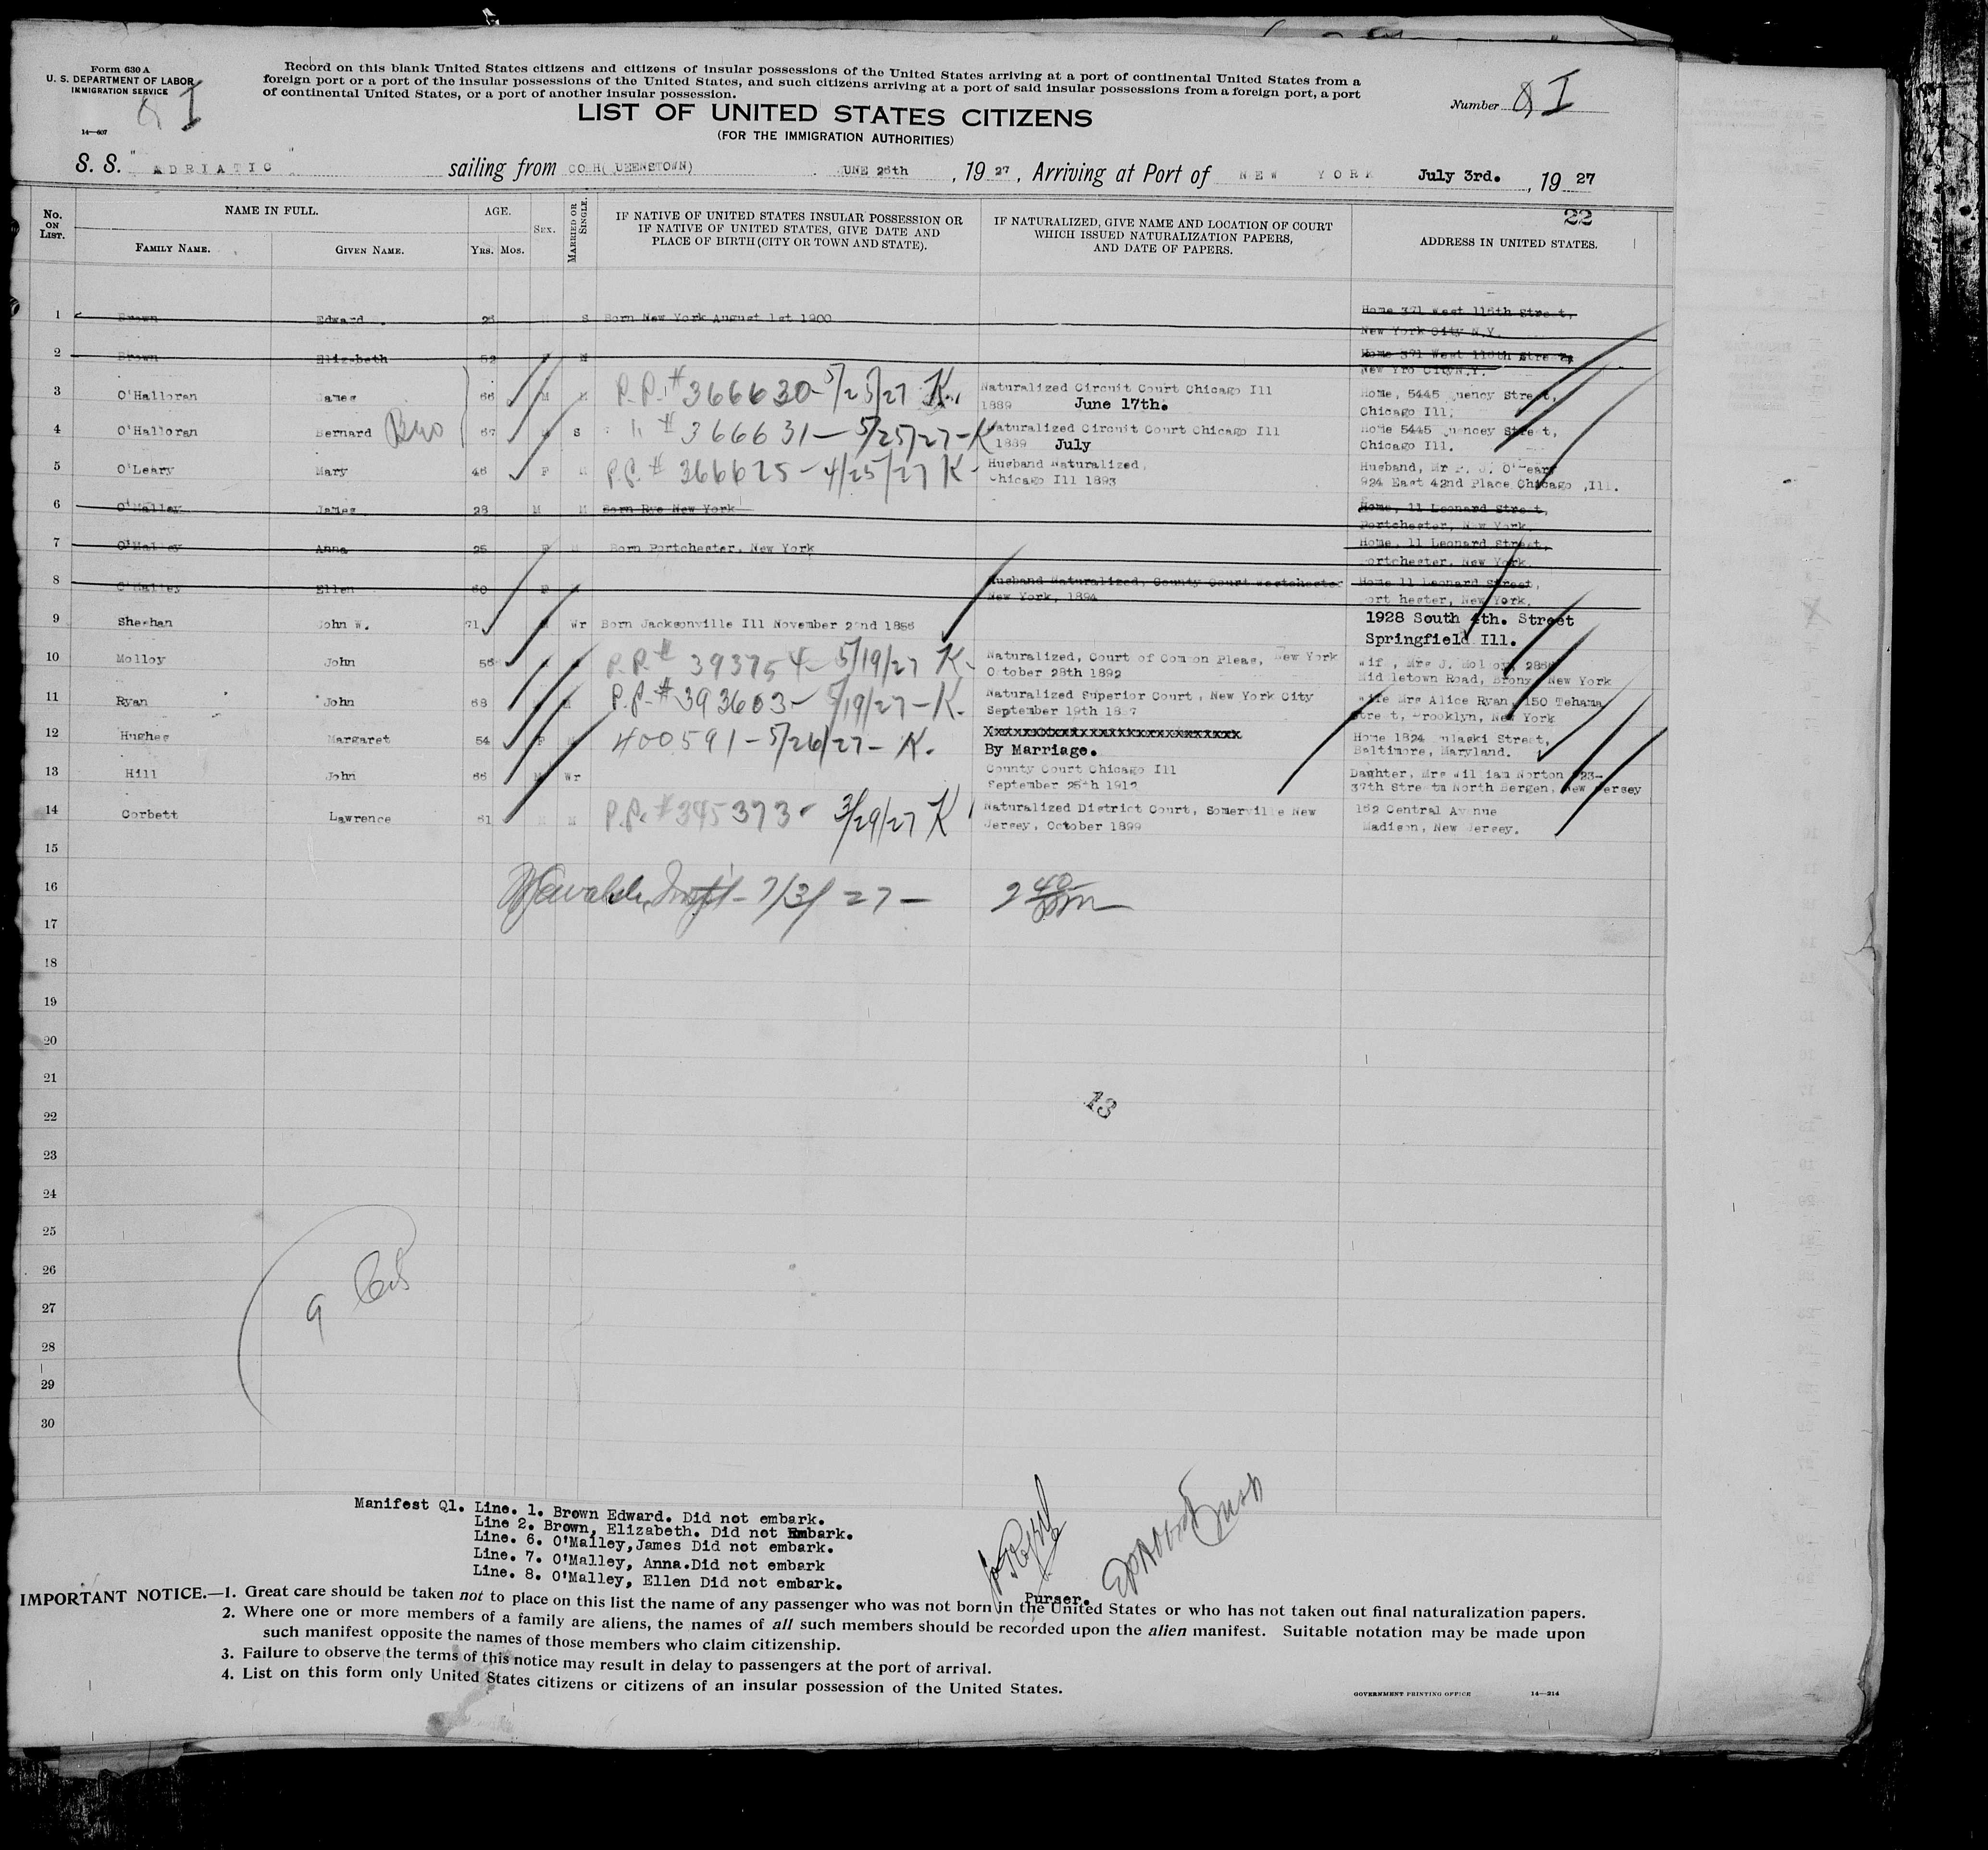 Form 630 A
U. S. DEPARTMENT OF LABOR
IMMIGRATION SERVICE
14—607
Record on this blank United States citizens and citizens of insular possessions of the United States arriving at a port of continental United States from a
foreign port or a port of the insular possessions of the United States, and such citizens arriving at a port of said insular possessions from a foreign port, a port
of continental United States, or a port of another insular possession.
LIST OF UNITED STATES CITIZENS
(FOR THE IMMIGRATION AUTHORITIES)
Number I
S. S. "ADRIATIC" sailing from CO H( UEENSTOWN) UNE 26th, 1927, Arriving at Port of NEW YORK July 3rd., 1927
22
No. ON LIST. NAME IN FULL. FAMILY NAME. GIVEN NAME. AGE. YRS. MOS. SEX. MARRIED OR SINGLE. IF NATIVE OF UNITED STATES INSULAR POSSESSION OR IF NATIVE OF UNITED STATES, GIVE DATE AND PLACE OF BIRTH (CITY OR TOWN AND STATE). IF NATURALIZED, GIVE NAME AND LOCATION OF COURT WHICH ISSUED NATURALIZATION PAPERS, AND DATE OF PAPERS. ADDRESS IN UNITED STATES.
1 Brown Edward 26 S Born New York August 1st 1900 Home 371 West 116th Street,
New York City N.Y.
2 Brown Elizabeth 52 M Home 371 West 116th Street,
New Yro CityN.Y.
3 O'Halloran James 66 M M P.P. #366630-5/25/27 K. Naturalized Circuit Court Chicago Ill Home, 5445 uency Street,
1889 June 17th. Chicago Ill.
4 O'Halloran Bernard Bro 67 S " #366631-5/25/27-K Naturalized Circuit Court Chicago Ill Home 5445 Quencey Street,
1889 July Chicago Ill.
5 O'Leary Mary 46 F M P.P. #366625-4/25/27 K- Husband Naturalized, Husband, Mr P. J. O'Leary
Chicago Ill 1893 924 East 42nd Place Chicago ,Ill.
6 O'Malley James 28 M M Born Rye New York Home, 11 Leonard Street,
Portchester, New York.
7 O'Malley Anna 25 F M Born Portchester, New York Home, 11 Leonard Street,
ortchester, New York.
8 O'Malley Ellen 60 F Husband Naturalized, County Court Westchester Home 11 Leonard Street,
New York, 1894 ort hester, New York.
9 Sheehan John W. 71 M Wr Born Jacksonville Ill November 22nd 1856 1928 South 4th. Street
Springfield Ill.
10 Molloy John 56 P.P.# 393754-5/19/27 K- Naturalized, Court of Common Pleas, New York Wife, Mrs J. Molloy,
October 28th 1892 Middletown Road, Bronx, New York
11 Ryan John 68 M P.P.#393603-5/19/27-K. Naturalized Superior Court, New York City Wife Mrs Alice Ryan, 150 Tehama
September 19th 18 7 Street, Brooklyn, New York
12 Hughes Margaret 54 F 400591-5/26/27-K. Xxxxxxxxxxxxxxxxxxxxxxxxxxxx Home 1824 ulaski Street,
By Marriage. Baltimore, Maryland.
13 Hill John 66 M Wr County Court Chicago Ill Daughter, Mrs William Norton 923-
September 25th 1912 37th Streetm North Bergen, New Jersey
14 Corbett Lawrence 61 M M P.P. #345373-3/29/27 K Naturalized District Court, Somerville New 162 Central Avenue
Jersey, October 1899 Madison, New Jersey.
15
16 7/3/27- 2 40 pm
17
18
19
20
21
22
13
23
24
25
26
27 9
28
29
30
Manifest Q1. Line. 1. Brown Edward. Did not embark.
Line 2. Brown, Elizabeth. Did not Embark.
Line. 6. O'Malley,James Did not embark.
Line. 7. O'Malley, Anna.Did not embark
Line. 8. O'Malley, Ellen Did not embark.
Purser.
IMPORTANT NOTICE.—1. Great care should be taken not to place on this list the name of any passenger who was not born in the United States or who has not taken out final naturalization papers.
2. Where one or more members of a family are aliens, the names of all such members should be recorded upon the alien manifest. Suitable notation may be made upon
such manifest opposite the names of those members who claim citizenship.
3. Failure to observe the terms of this notice may result in delay to passengers at the port of arrival.
4. List on this form only United States citizens or citizens of an insular possession of the United States.
GOVERNMENT PRINTING OFFICE 14—214